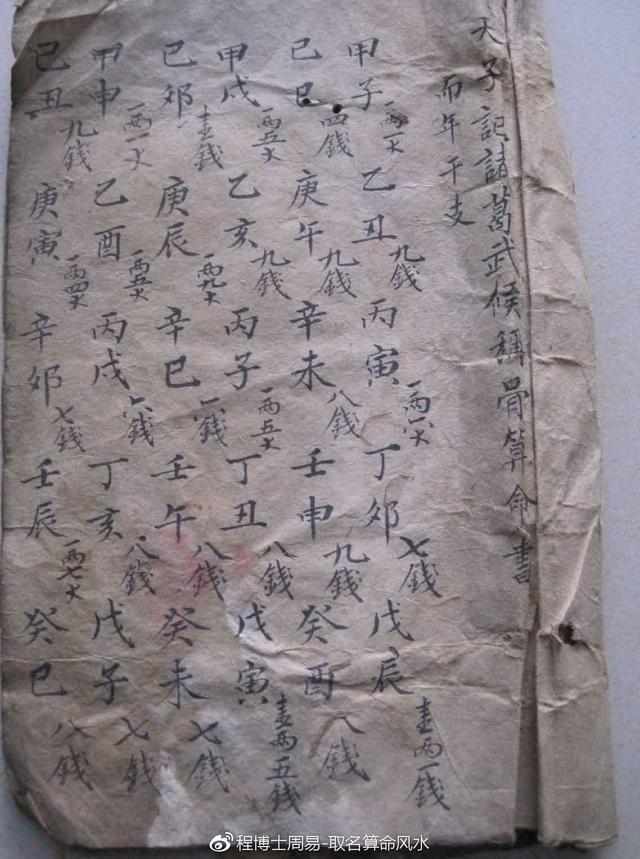 天子記諸葛武候稱骨算命書
而年干支
甲子 一两一 乙丑 九錢 丙寅 一两六 丁卯 七錢 戊辰 壹两一錢
己巳 四錢 庚午 九錢 辛未 八錢 壬申 九錢 癸酉 八錢
甲戌 一两五 乙亥 九錢 丙子 一两五 丁丑 八錢 戊寅 壹两五錢
己卯 壹錢 庚辰 一两九 辛巳 錢 壬午 八錢 癸未 七錢
甲申 一两一 乙酉 一两五 丙戌 六錢 丁亥 八錢 戊子 七錢
己丑 九錢 庚寅 一两四 辛卯 七錢 壬辰 一两七 癸巳 八錢
程博士周易-取名算命风水